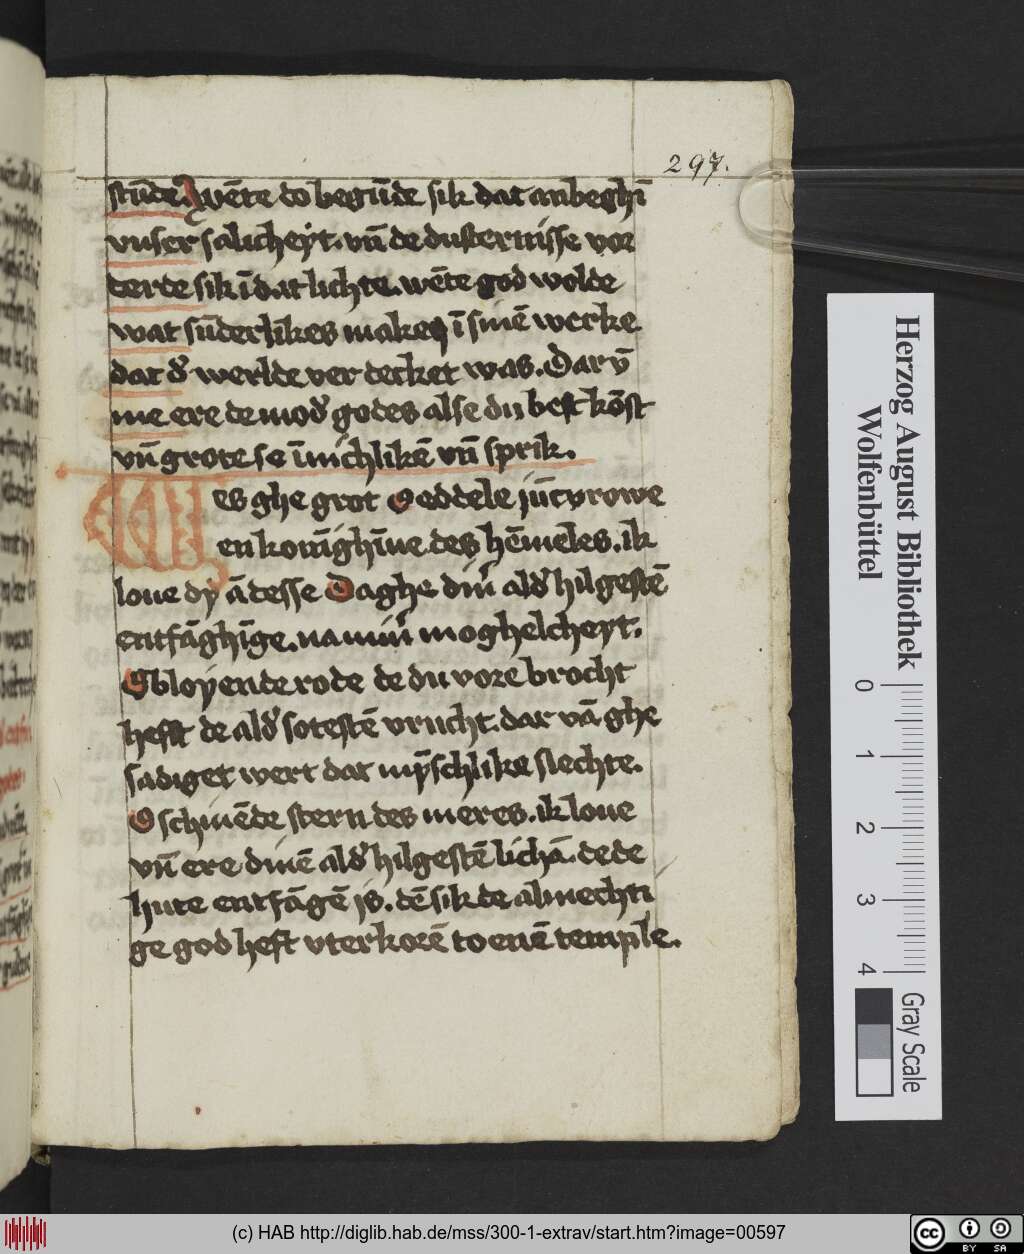 297.
stūde wēte do begūde sik dat anbeghī
vnser salicheyt. vn̄ de dusternisse vor
terde sik ī dat lichte. wēte god wolde
wat sūderlikes maken ī sinē werke
dat d' werlde ver decket was. Dar v̄
me ere de mod' godes alse du best kōst
vn̄ grote se īnichlikē vn̄ sprik.
Wes ghe grot O eddele jūcvrowe
en konīghīne des hēmeles. ik
loue dy ā desse Daghe dīn' ald' hilgestē
entfāghīge. na mīn' moghelcheyt.
O bloyende rode de du vore brocht
hefft de ald' sotestē vrucht. dar vā ghe
sadiget wert dat mȳschlike slechte.
O schinēde stern des meres. ik loue
vn̄ ere dinē ald' hilgestē lichā. de de
hute entfāgē is. dē sik de almechti
ge god heft vterkorē to enē temple.
Herzog August Bibliothek
Wolfenbüttel
0 1 2 3 4
Gray Scale
(c) HAB http://diglib.hab.de/mss/300-1-extrav/start.htm?image=00597
cc BY SA